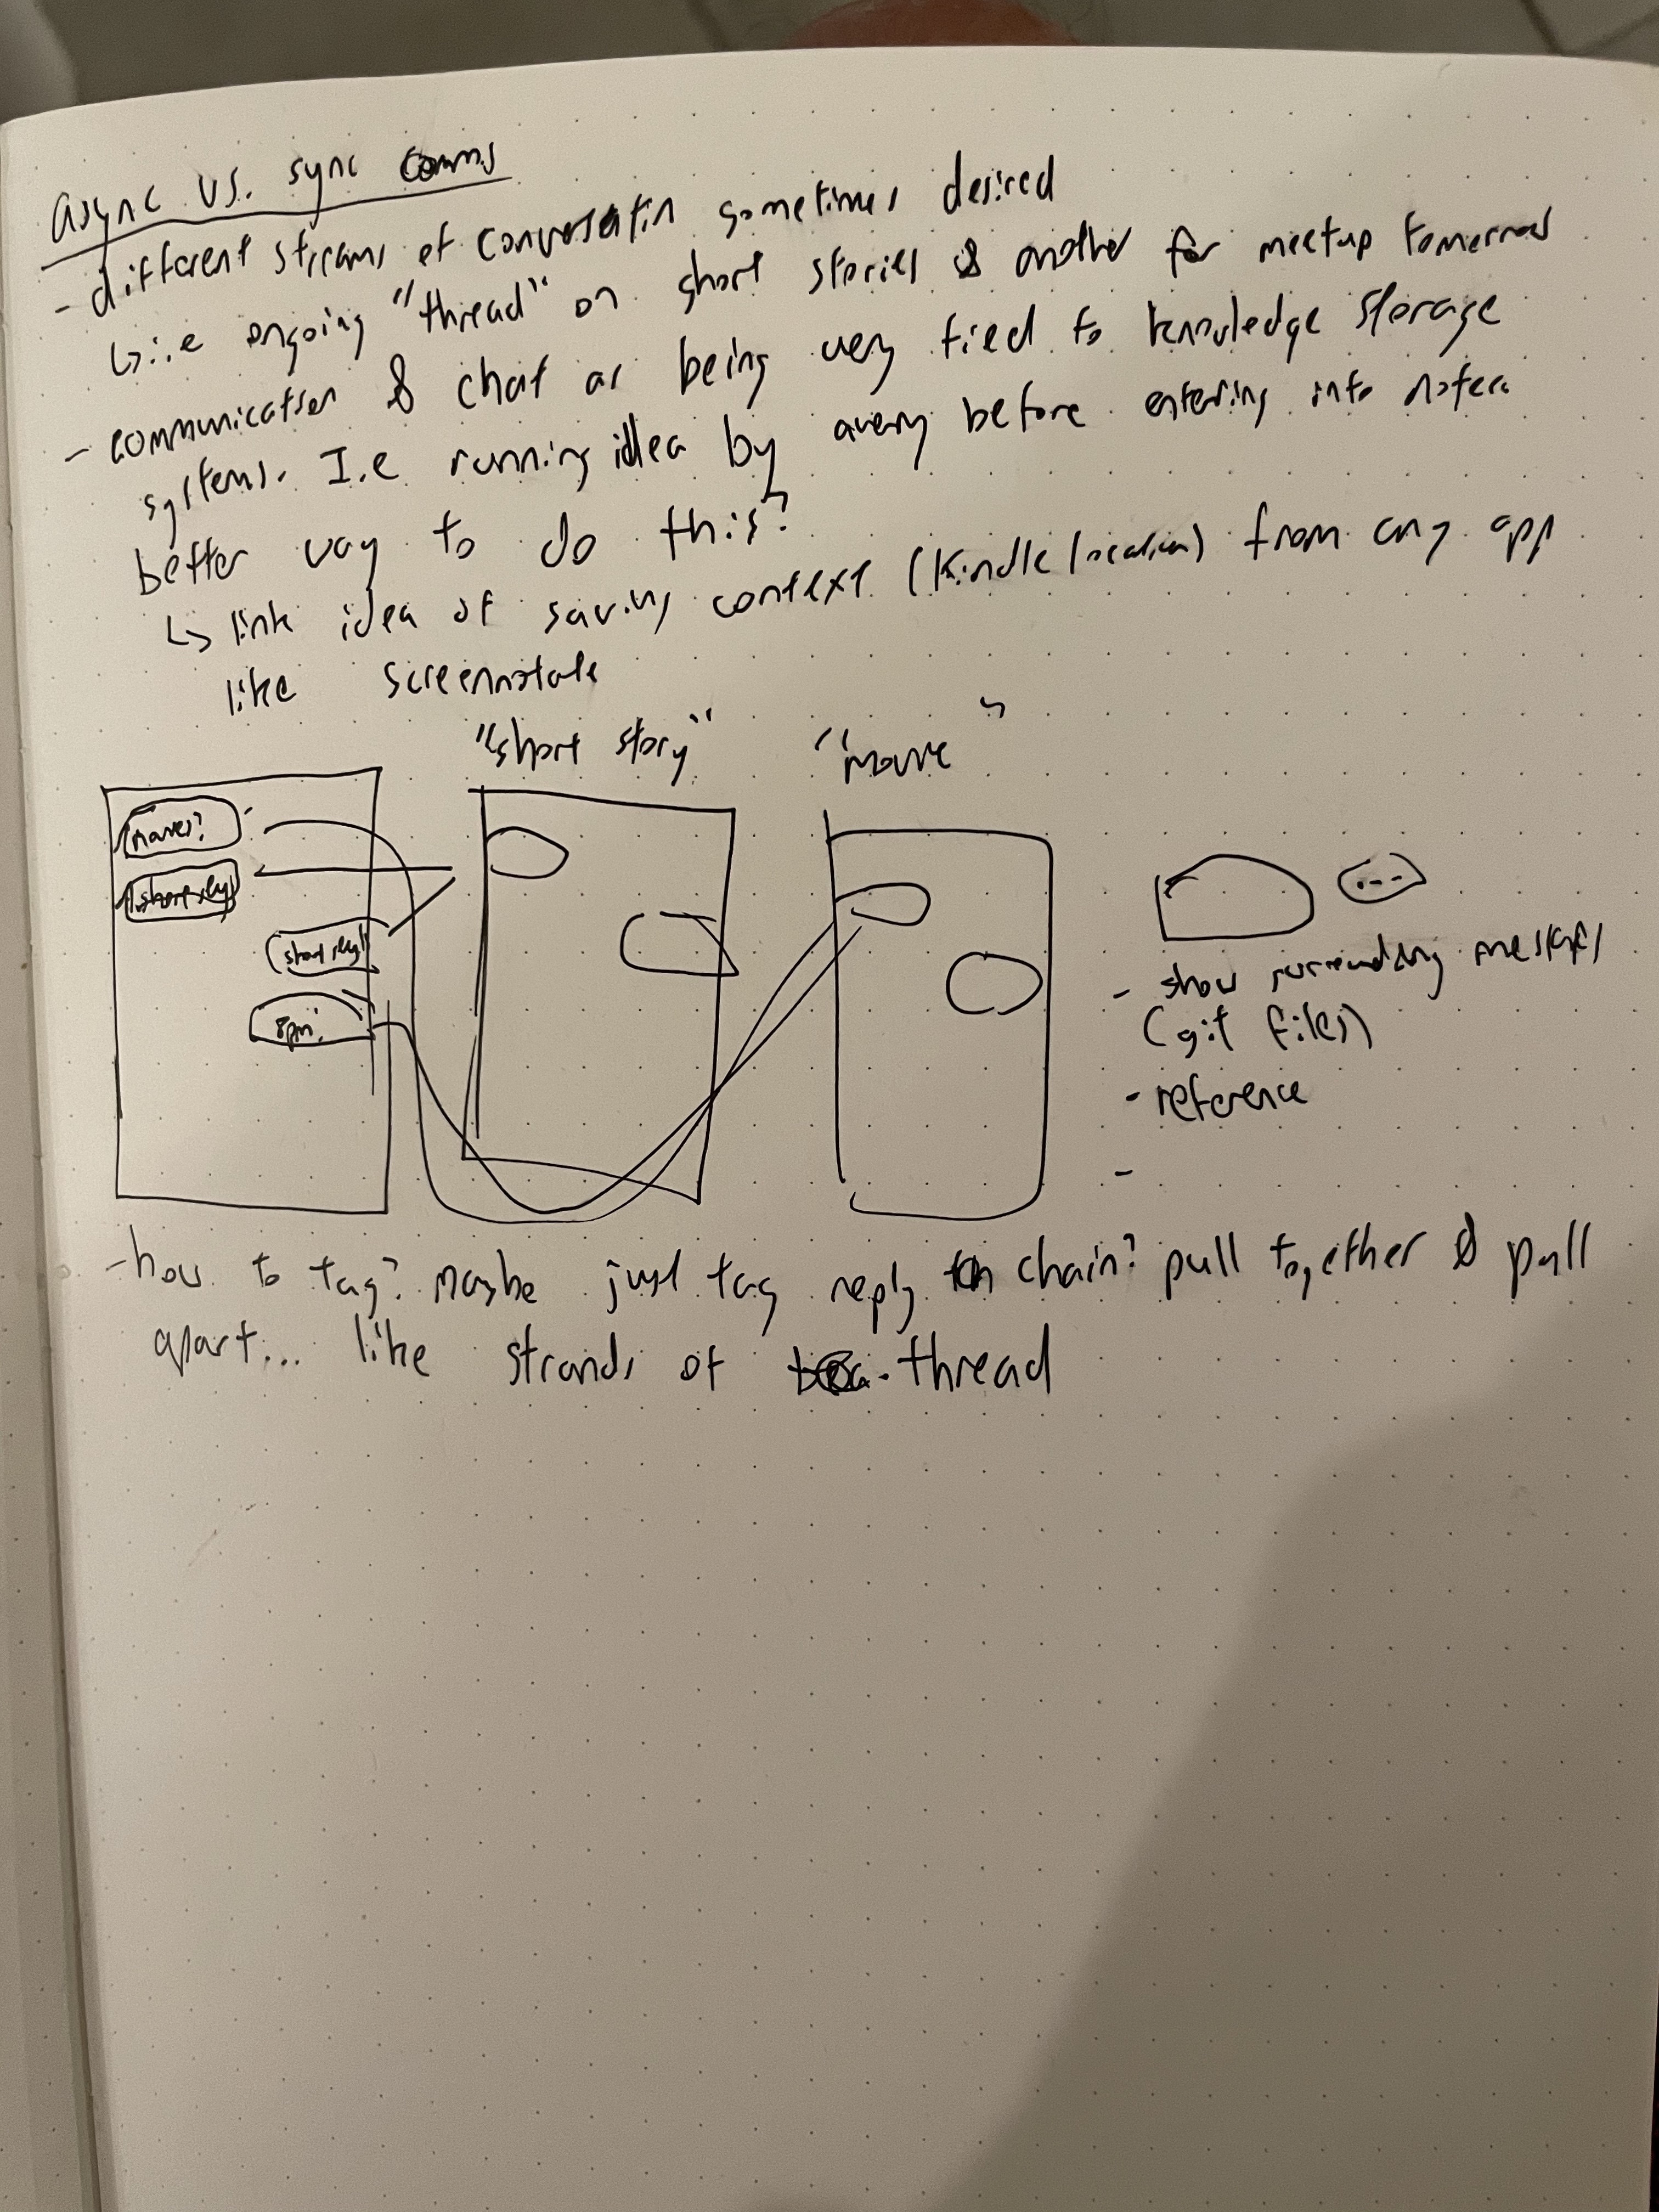 async vs. sync comms
- different streams of conversatin sometimes desired
↳ i.e ongoing "thread" on short stories & another for meetup tomorrow
- communication & chat as being very tied to knowledge storage
systems. I.e running idea by avery before entering into notes
better way to do this?
↳ link idea of saving context (Kindle location) from any app
like screennotate
"short story" "movie"
movies?
short story
short reply
8pm?
- show surrounding messages
(git files)
- reference
-
- how to tag? Maybe just tag reply chain? pull together & pull
apart... like strands of thread